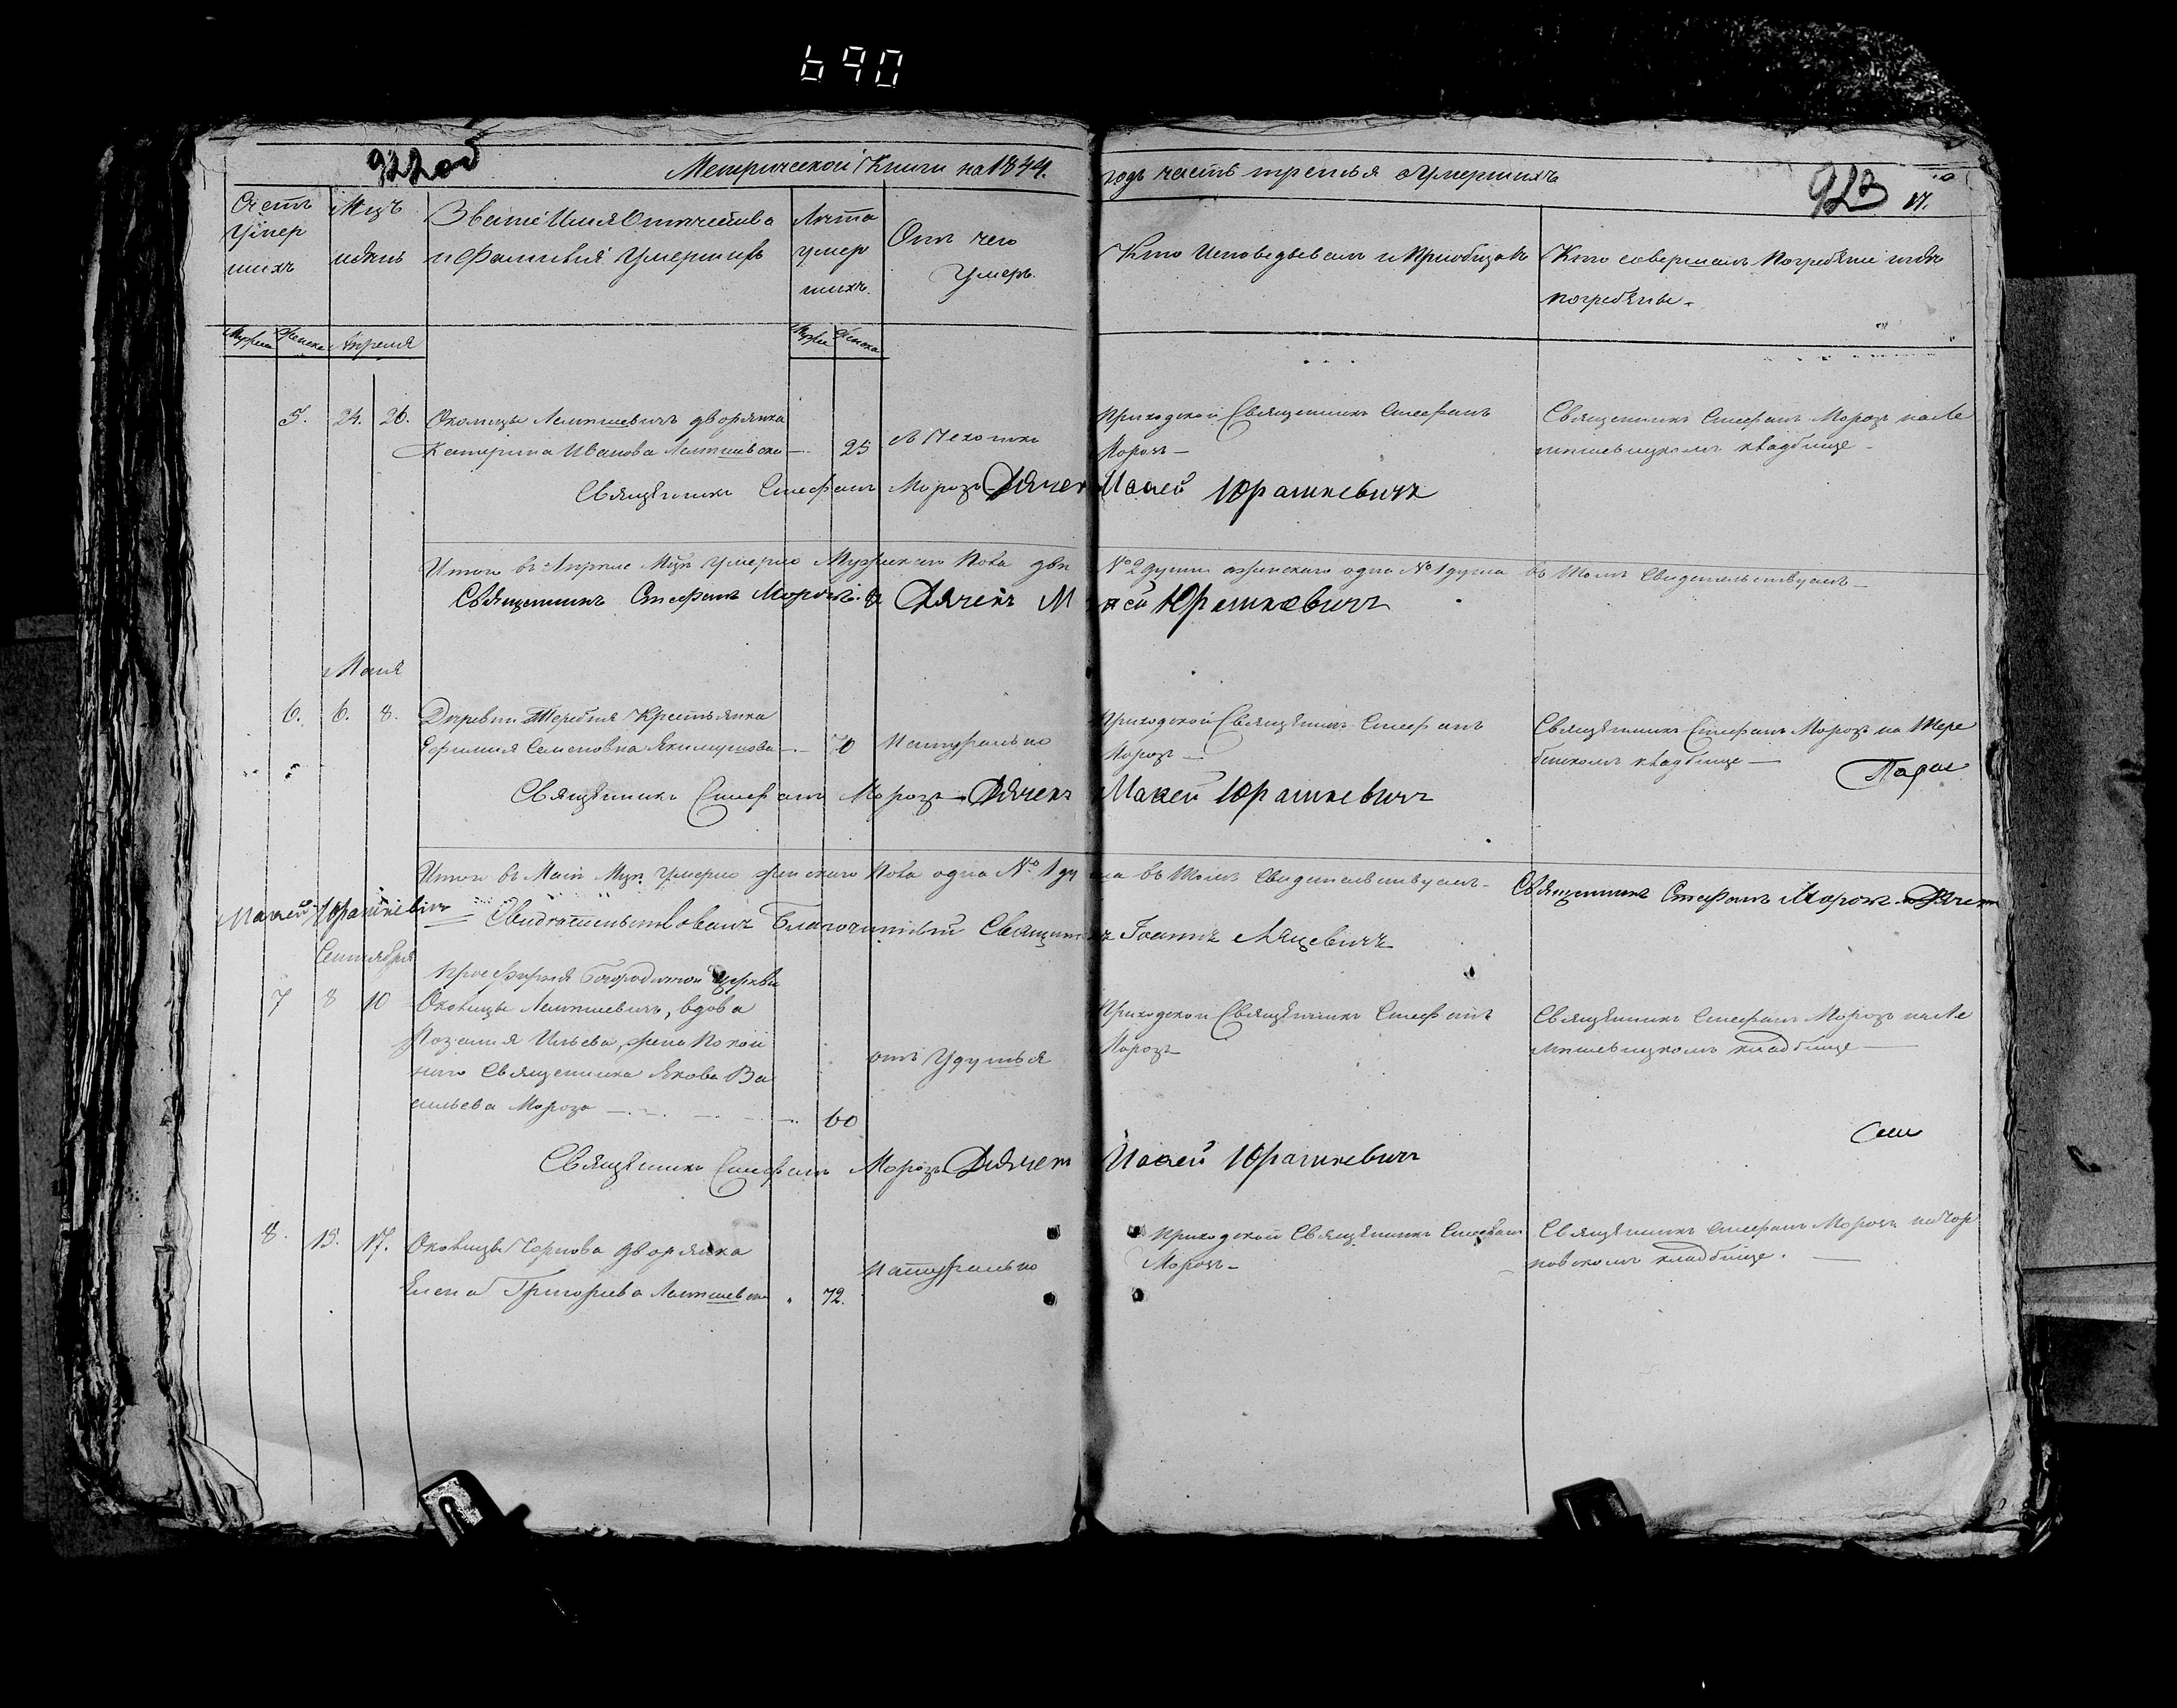 690
922об
Метрической Книги на 1844.
годъ часть третья о Умершихъ
923
17.
Счетъ Умер шихъ
Мцъ
и день
Званіе Имя Отчество
и Фамилія Умершихъ
Лѣта умер шихъ.
Отъ чего
Умеръ.
Кто Исповедывалъ и Приобщалъ
Кто совершалъ Погребеніе и гдѣ
погребены.
Мужска Женска Апреля
Мужска Женска
5. 24. 26. Околицы Лемешевичъ дворянка
Катерина Иванова Лемешевска 25
Приходской Священникъ Стефанъ
Морозъ
Священникъ Стефанъ Морозъ на Ле
мешевицкомъ кладбище
Священникъ Стефанъ Морозъ Дячекъ Макей Юрашкевичъ
Итого въ Апреле Мцѣ умерло Мужеска Пола две № 2 души женскаго одна № 1 душа въ томъ Свидетельствуемъ
Священникъ Стефанъ Морозъ. Дячекъ Макей Юрашкевичъ
Мая
6. 6. 8. Деревни Теребня Крестьянка
Семеновна Якимушова 70 Натурально
Приходской Священникъ Стефанъ
Морозъ
Священникъ Стефанъ Морозъ на Тере
бенскомъ кладбище
Священникъ Стефанъ Морозъ Дячекъ Макей Юрашкевичъ
Итого въ Маи Мцѣ умерло женскаго Пола одна № 1 душа въ томъ Свидетельствуемъ
Священникъ Стефанъ Морозъ Дячекъ
Макей Юрашкевичъ
Свидѣтельствовалъ Благочинный Священникъ Іоаннъ Ляцевичъ
Сентября
Просфирня Богородичной Церкви
7 8 10 Околицы Лемешевичъ, вдова
Розалия Ильева, жена Покой
наго Священника Якова Ва
сильева Мороза 60
отъ Удушья
Приходской Священникъ Стефанъ
Морозъ
Священникъ Стефанъ Морозъ на Ле
мешевицкомъ кладбище
Священникъ Стефанъ Морозъ Дячекъ Макей Юрашкевичъ
8. 15. 17. Околицы Чернова дворянка
Елена Григорьева Лемешевска 72.
Натурально
Приходской Священникъ Стефанъ
Морозъ
Священникъ Стефанъ Морозъ на Чер
новскомъ кладбище.